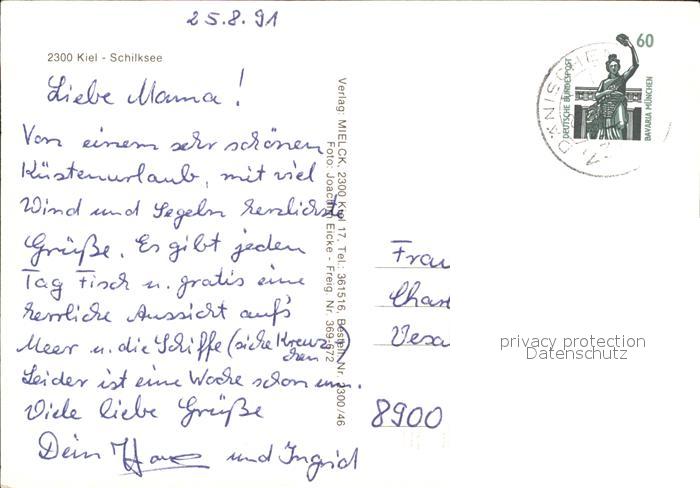 25.8.91
2300 Kiel - Schilksee
Liebe Mama!
Von einem sehr schönen
Küstenurlaub, mit viel
Wind und Segeln herzlichste
Grüße. Es gibt jeden
Tag Fisch u. gratis eine
herrliche Aussicht auf's
Meer u. die Schiffe (siehe Kreuz-
chen)
Leider ist eine Woche schon um.
Viele liebe Grüße
Dein und Ingrid
Verlag: MIELCK, 2300 Kiel 17, Tel.: 361516, Bestell-Nr. 2300/46
Foto: Joachim Eicke - Freig. Nr. 369-672
60
DEUTSCHE BUNDESPOST
BAVARIA MÜNCHEN
DÄNISCHE
Frau
Char
8900
privacy protection
Datenschutz